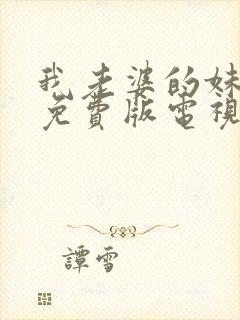 我老婆的妹
免費版電視
譚雪